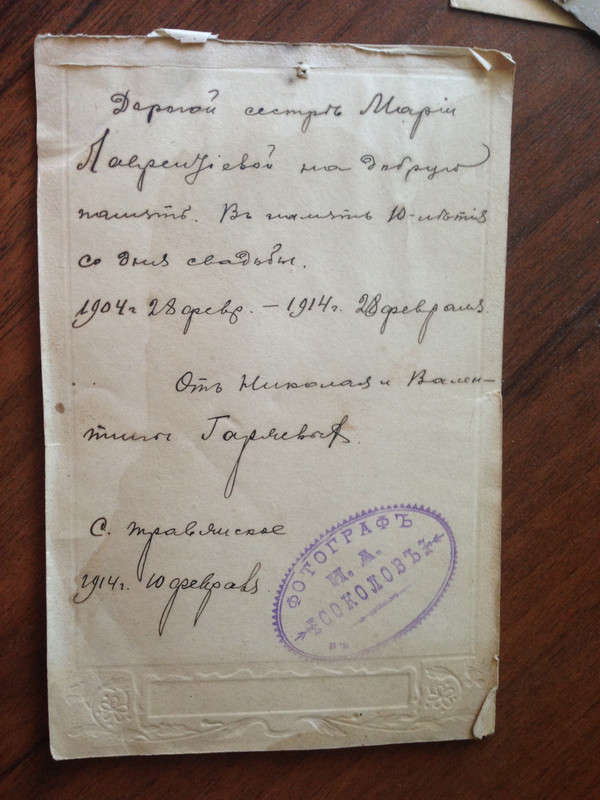 Дорогой сестрѣ Маріи
Лаврентіевой на добрую
память. Въ память 10-лѣтія
со дня свадьбы.
1904 г. 28 февр. – 1914 г. 28 февраля.
Отъ Николая и Вален-
тины Гаряевыхъ.
С. Травянское
1914 г. 10 февраля
ФОТОГРАФЪ
И. А.
СОКОЛОВЪ
ВЪ